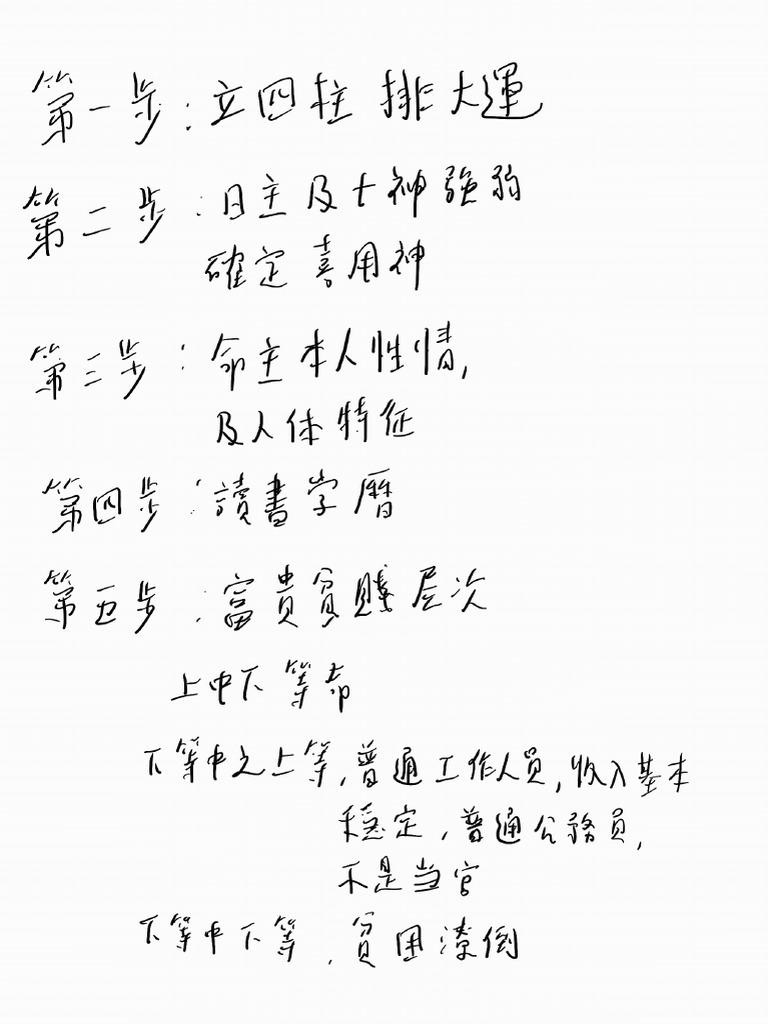 第一步：立四柱 排大運
第二步：日主及十神強弱
確定喜用神
第三步：命主本人性情,
及人体特征
第四步：讀書学曆
第五步：富貴貧賤层次
上中下等命
下等中之上等,普通工作人員,收入基本
穩定,普通公務員,
不是当官
下等中下等,貧困潦倒